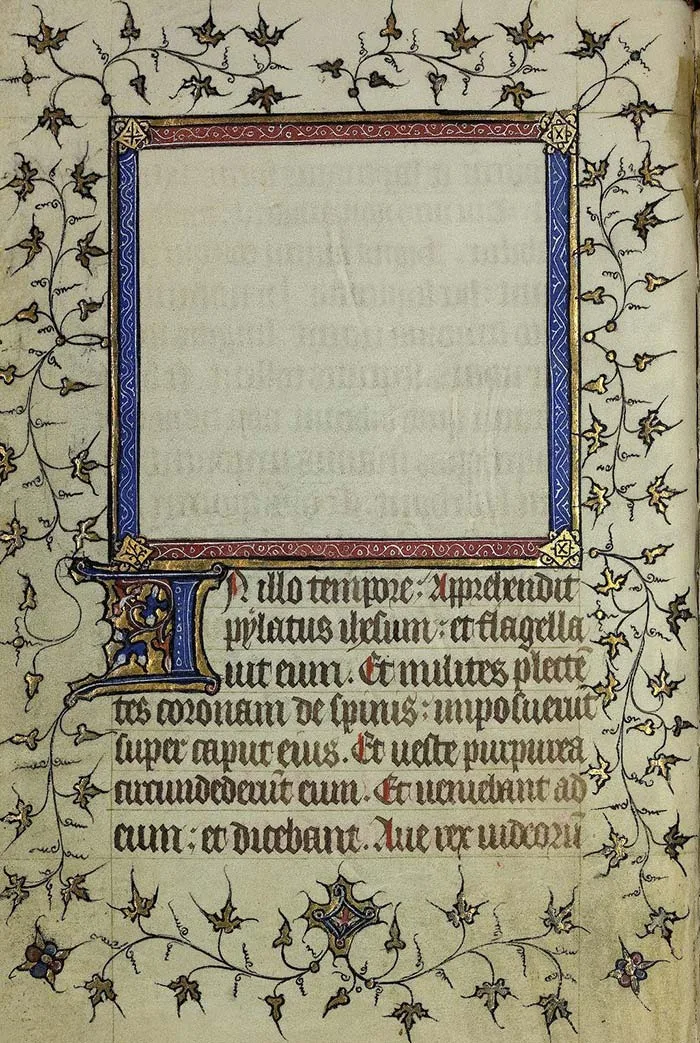 IN illo tempore: Apprehendit
pylatus ihesum: et flagella
uit eum. Et milites plectē
tes coronam de spinis: imposuerūt
super caput eius. Et ueste purpurea
circundederūt eum. Et ueniebant ad
eum: et dicebant. Aue rex iudeorū